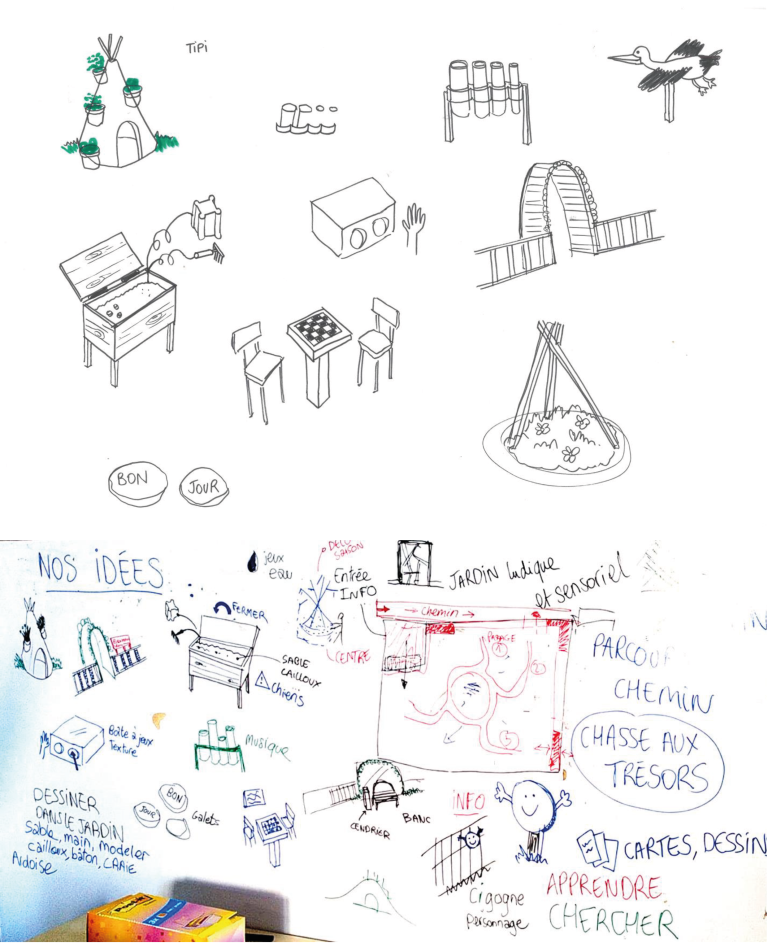 TiPi
BON
JOUR
NOS IDÉES
jeux
eau
DE LA
SAISON
Entrée
INFO
JARDIN ludique
et sensoriel
FERMER
chemin
CENTRE
SABLE
CAILLOUX
Chiens
PARCOU
CHEMIN
CHASSE AUX
TRESORS
Boîte à jeux
Texture
Musique
DESSINER
DANS LE JARDIN
Sable, main, modeler
cailloux, bâton, CRAIE
Ardoise
BON
JOUR
galets
CENDRIER
BANC
INFO
Cigogne
personnage
CARTES, DESSIN
APPRENDRE
CHERCHER